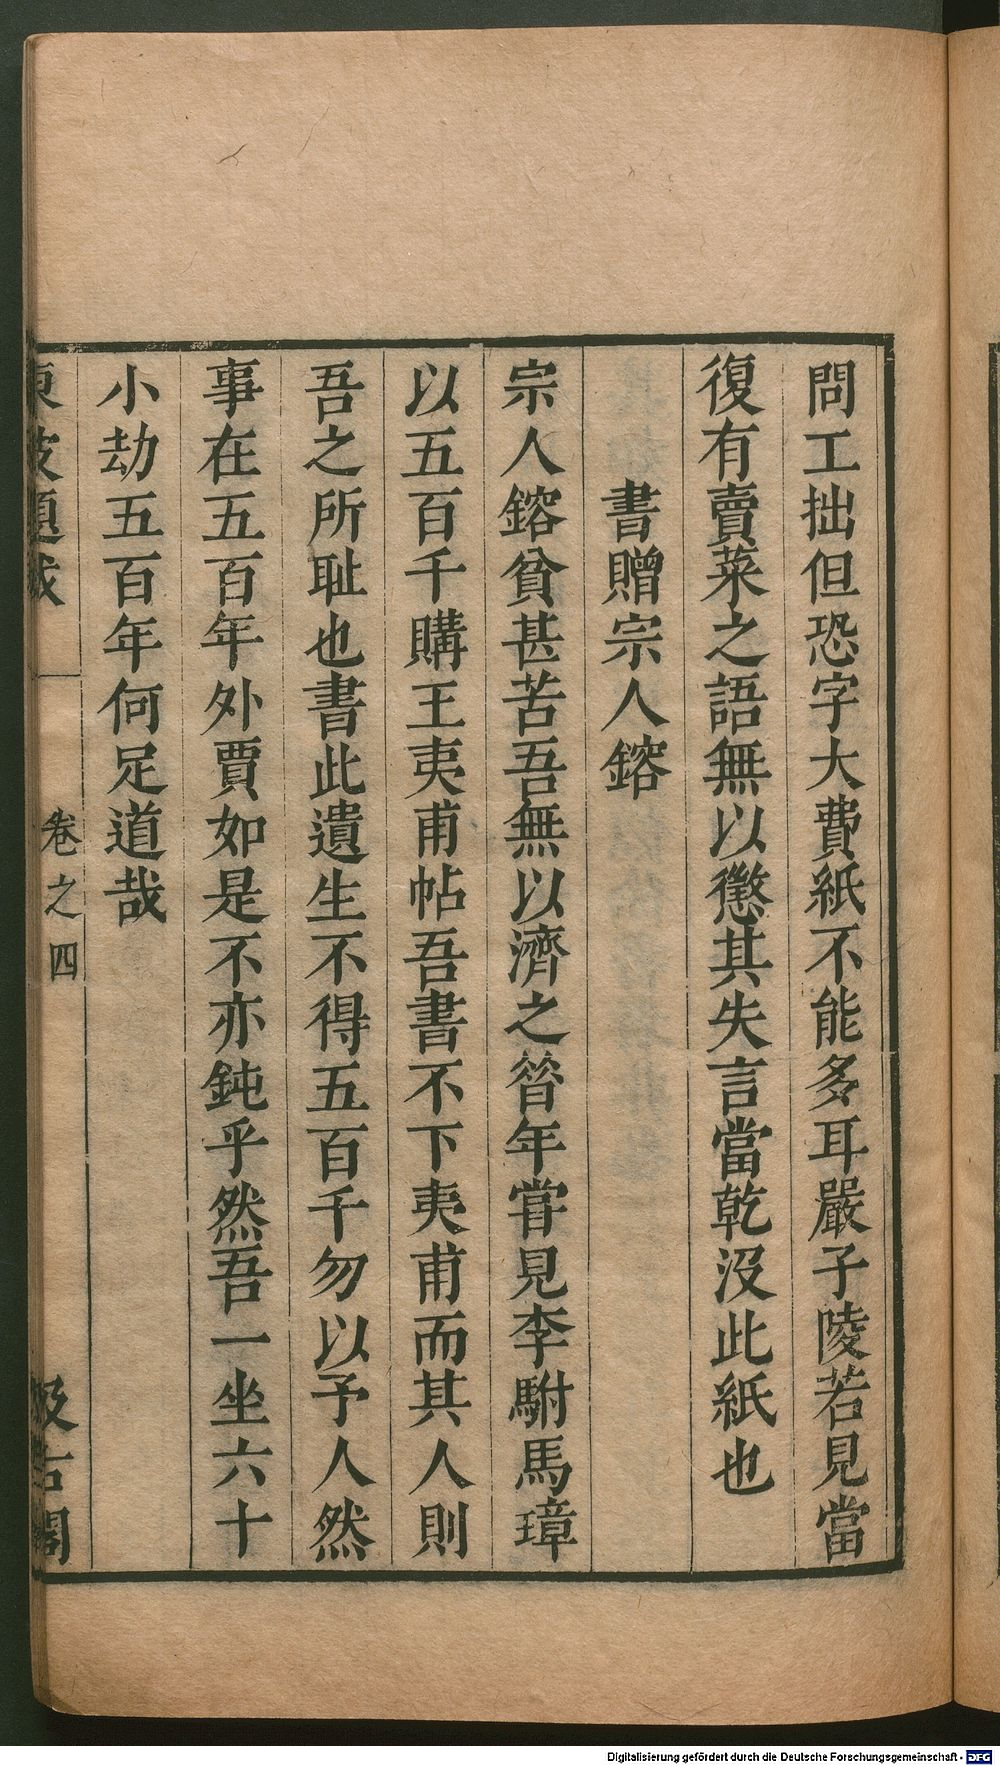 問工拙但恐字大費紙不能多耳嚴子陵若見當
復有賣菜之語無以懲其失言當乾没此紙也
書贈宗人鎔
宗人鎔貧甚苦吾無以濟之昝年甞見李駙馬璋
以五百千購王夷甫帖吾書不下夷甫而其人則
吾之所耻也書此遺生不得五百千勿以予人然
事在五百年外賈如是不亦鈍乎然吾一坐六十
小劫五百年何足道哉
東坡題跋
卷之四
汲古閣
Digitalisierung gefördert durch die Deutsche Forschungsgemeinschaft - DFG